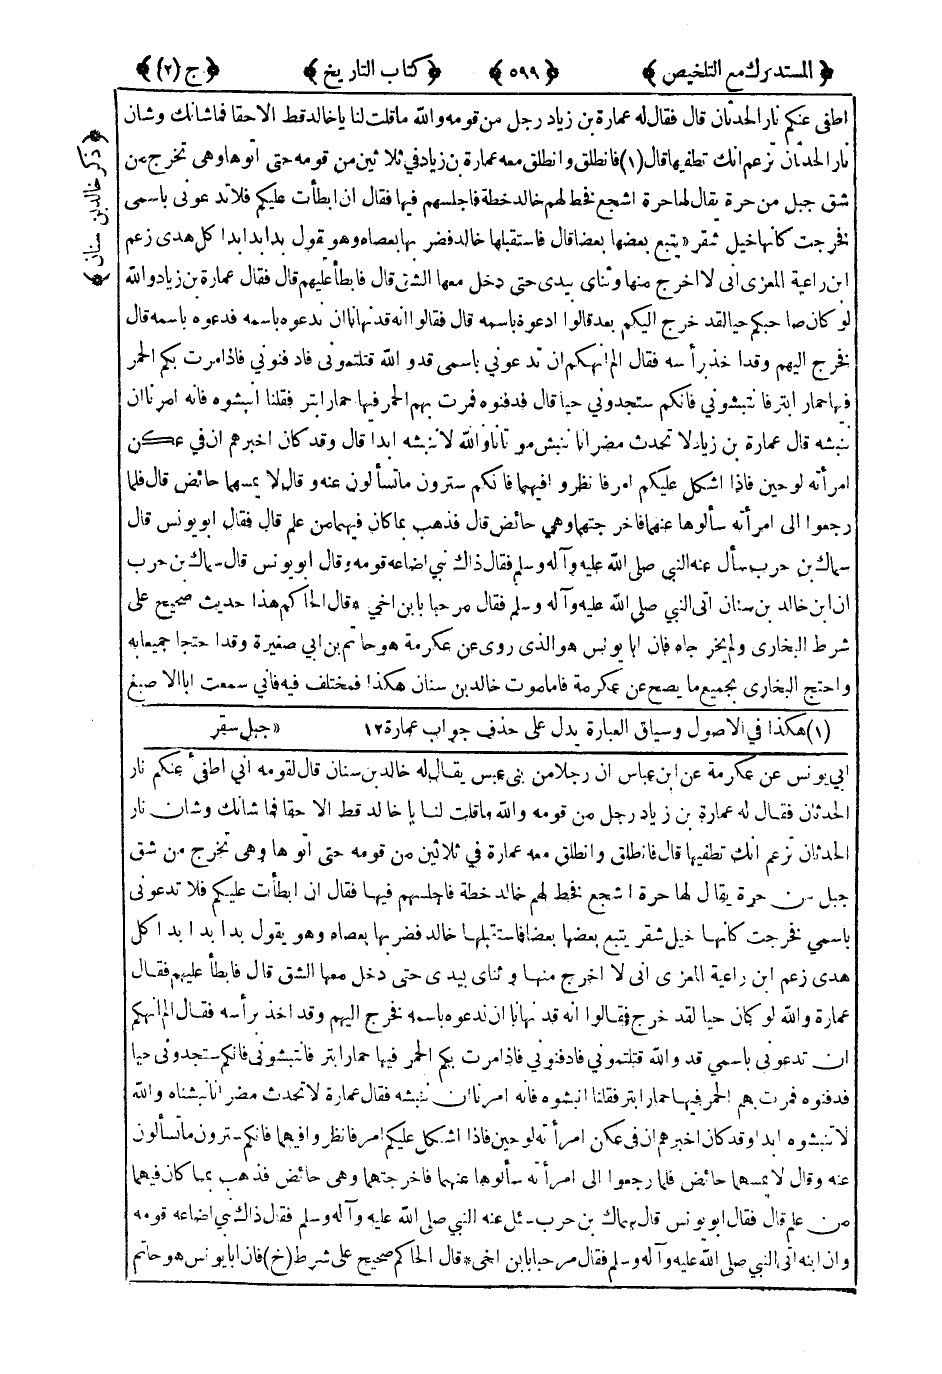 ﴿المستدرك مع التلخيص﴾ ﴿٥٩٩﴾ ﴿كتاب التاريخ﴾ ﴿ج (٢)﴾
﴿ذكر خالد بن سنان﴾
اطفى عنكم نار الحدثان قال فقال له عمارة بن زياد رجل من قومه والله ماقلت لنا يا خالد قط الاحقا فماشانك وشان
نار الحدثان تزعم انك تطفيها قال (١) فانطلق وانطلق معه عمارة بن زياد في ثلاثين من قومه حتى اتوها وهي تخرج من
شق جبل من حرة يقال لها حرة اشجع فخط لهم خالد خطة فاجلسهم فيها فقال ان ابطأت عليكم فلا تدعونى باسمى
فخرجت كانها خيل شقر * يتبع بعضها بعضا قال فاستقبلها خالد فضربها بعصاه وهو يقول بدا بدا بدا كل هدى زعم
ابن راعية المعزى انى لا اخرج منها وثناى بيدى حتى دخل معها الشق قال فابطأ عليهم قال فقال عمارة بن زياد والله
لوكان صاحبكم حيا لقد خرج اليكم بعد قالوا ادعوه باسمه قال فقالوا انه قد نهانا ان ندعوه باسمه فدعوه باسمه قال
فخرج اليهم وقد اخذ برأسه فقال الم انهكم ان تدعوني باسمى قد والله قتلتمونى فادفنوني فاذا مرت بكم الحمر
فيها حمار ابتر فانتبشوني فانكم ستجدوني حيا قال فدفنوه فمرت بهم الحمر فيها حمار ابتر فقلنا انبشوه فانه امرنا ان
ننبشه قال عمارة بن زياد لا تحدث مضر انا ننبش موتانا والله لا ننبشه ابدا قال وقد كان اخبرهم ان في عكن
امرأته لوحين فاذا اشكل عليكم امر فانظروا فيهما فانكم سترون ماتسألون عنه وقال لا يمسهما حائض قال فلما
رجعوا الى امرأته سألوها عنهما فاخرجتهما وهي حائض قال فذهب بما كان فيهما من علم قال فقال ابو يونس قال
سماك بن حرب سأل عنه النبي صلى الله عليه وآله وسلم فقال ذاك نبي اضاعه قومه وقال ابو يونس قال سماك بن حرب
ان ابن خالد بن سنان اتى النبي صلى الله عليه وآله وسلم فقال مرحبا بابن اخي * قال الحاكم هذا حديث صحيح على
شرط البخارى ولم يخرجاه فان ابا يونس هو الذى روى عن عكرمة هو حاتم بن ابي صغيرة وقد احتجا جميعا به
واحتج البخارى بجميع ما يصح عن عكرمة فاما موت خالد بن سنان هكذا فمختلف فيه فاني سمعت ابا الاصبغ
(١) هكذا في الاصول وسياق العبارة يدل على حذف جواب عمارة ١٢ * جبل سقر
ابي يونس عن عكرمة عن ابن عباس ان رجلا من بنى عبس يقال له خالد بن سنان قال لقومه أني اطفىء عنكم نار
الحدثان فقال له عمارة بن زياد رجل من قومه والله ماقلت لنا يا خالد قط الا حقا فما شانك وشان نار
الحدثان تزعم انك تطفيها قال فانطلق وانطلق معه عمارة في ثلاثين من قومه حتى اتوها وهى تخرج من شق
جبل من حرة يقال لها حرة اشجع فخط لهم خالد خطة فاجلسهم فيها فقال ان ابطأت عليكم فلا تدعونى
باسمي فخرجت كانها خيل شقر يتبع بعضها بعضا فاستقبلها خالد فضربها بعصاه وهو يقول بدا بدا بدا كل
هدى زعم ابن راعية المعزى انى لا اخرج منها وثناى بيدى حتى دخل معها الشق قال فابطأ عليهم فقال
عمارة والله لو كان حيا لقد خرج فقالوا انه قد نهانا ان ندعوه باسمه فخرج اليهم وقد اخذ برأسه فقال الم انهكم
ان تدعونى باسمي قد والله قتلتموني فادفنوني فاذا مرت بكم الحمر فيها حمار ابتر فانتبشوني فانكم ستجدونى حيا
فدفنوه فمرت بهم الحمر فيها حمار ابتر فقلنا انبشوه فانه امرنا ان ننبشه فقال عمارة لا تحدث مضر انا نبشناه والله
لا تنبشوه ابدا وقد كان اخبرهم ان فى عكن امرأته لوحين فاذا اشكل عليكم امر فانظروا فيهما فانكم سترون ماتسألون
عنه وقال لا يمسهما حائض فلما رجعوا الى امرأته سألوها عنهما فاخرجتهما وهى حائض فذهب بما كان فيهما
من علم قال فقال ابو يونس قال سماك بن حرب سئل عنه النبي صلى الله عليه وآله وسلم فقال ذاك نبي اضاعه قومه
وان ابنه اتى النبي صلى الله عليه وآله وسلم فقال مرحبا بابن اخى * قال الحاكم صحيح على شرط (خ) فان ابا يونس هو حاتم